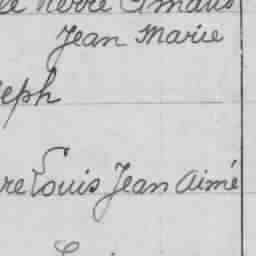 le Pierre Amans
Jean Marie
eph
re Louis Jean Aimé